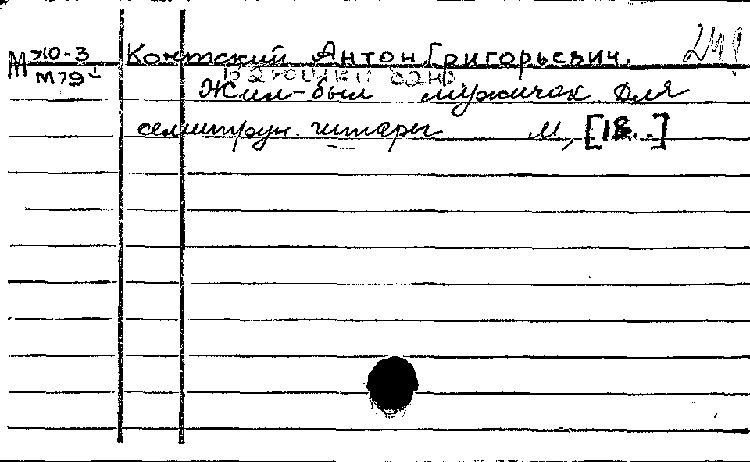 М Ж0-3 Контский Антон Григорьевич. 241
М79-1
Жил-был мужичок для
семиструн. гитары М, [18..]